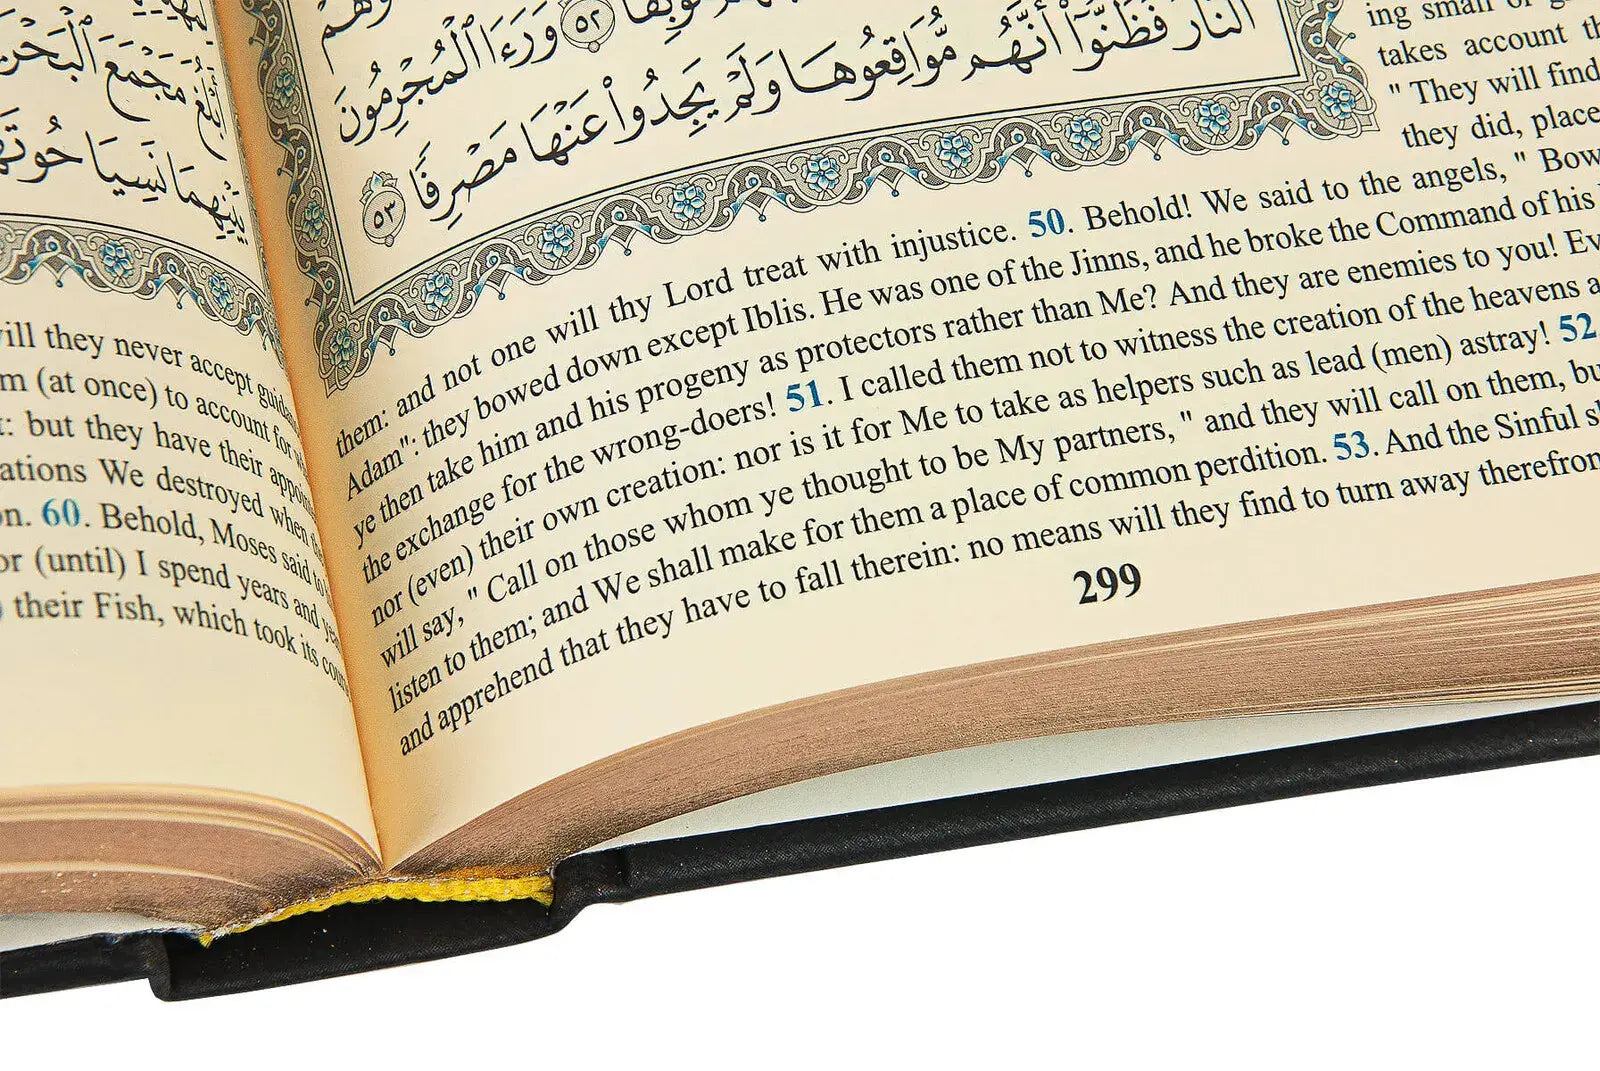 النار فظنوا أنهم مواقعوها ولم يجدوا عنها مصرفا ٥٣
ورءا المجرمون
٥٢
ing small or
takes account
" They will find
they did, place
them: and not one will thy Lord treat with injustice. 50. Behold! We said to the angels, " Bow
Adam": they bowed down except Iblis. He was one of the Jinns, and he broke the Command of his
ye then take him and his progeny as protectors rather than Me? And they are enemies to you!
the exchange for the wrong-doers! 51. I called them not to witness the creation of the heavens
nor (even) their own creation: nor is it for Me to take as helpers such as lead (men) astray! 52.
will say, " Call on those whom ye thought to be My partners, " and they will call on them,
listen to them; and We shall make for them a place of common perdition. 53. And the Sinful
and apprehend that they have to fall therein: no means will they find to turn away
299
مجمع البحر
بينهما نسيا
will they never accept
(at once) to account for
but they have their
We destroyed when
60. Behold, Moses said to
(until) I spend years and
their Fish, which took its